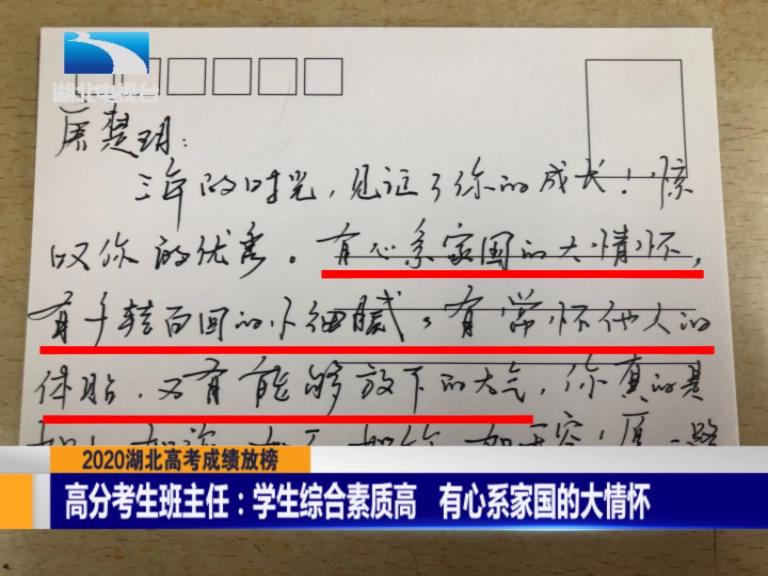 湖北电视台
唐楚玥：
三年的时光，见证了你的成长！惊
叹你的优秀。有心系家国的大情怀，
有千转百回的小细腻，有常怀他人的
体贴，又有能够放下的大气，你真的是
2020湖北高考成绩放榜
高分考生班主任：学生综合素质高 有心系家国的大情怀